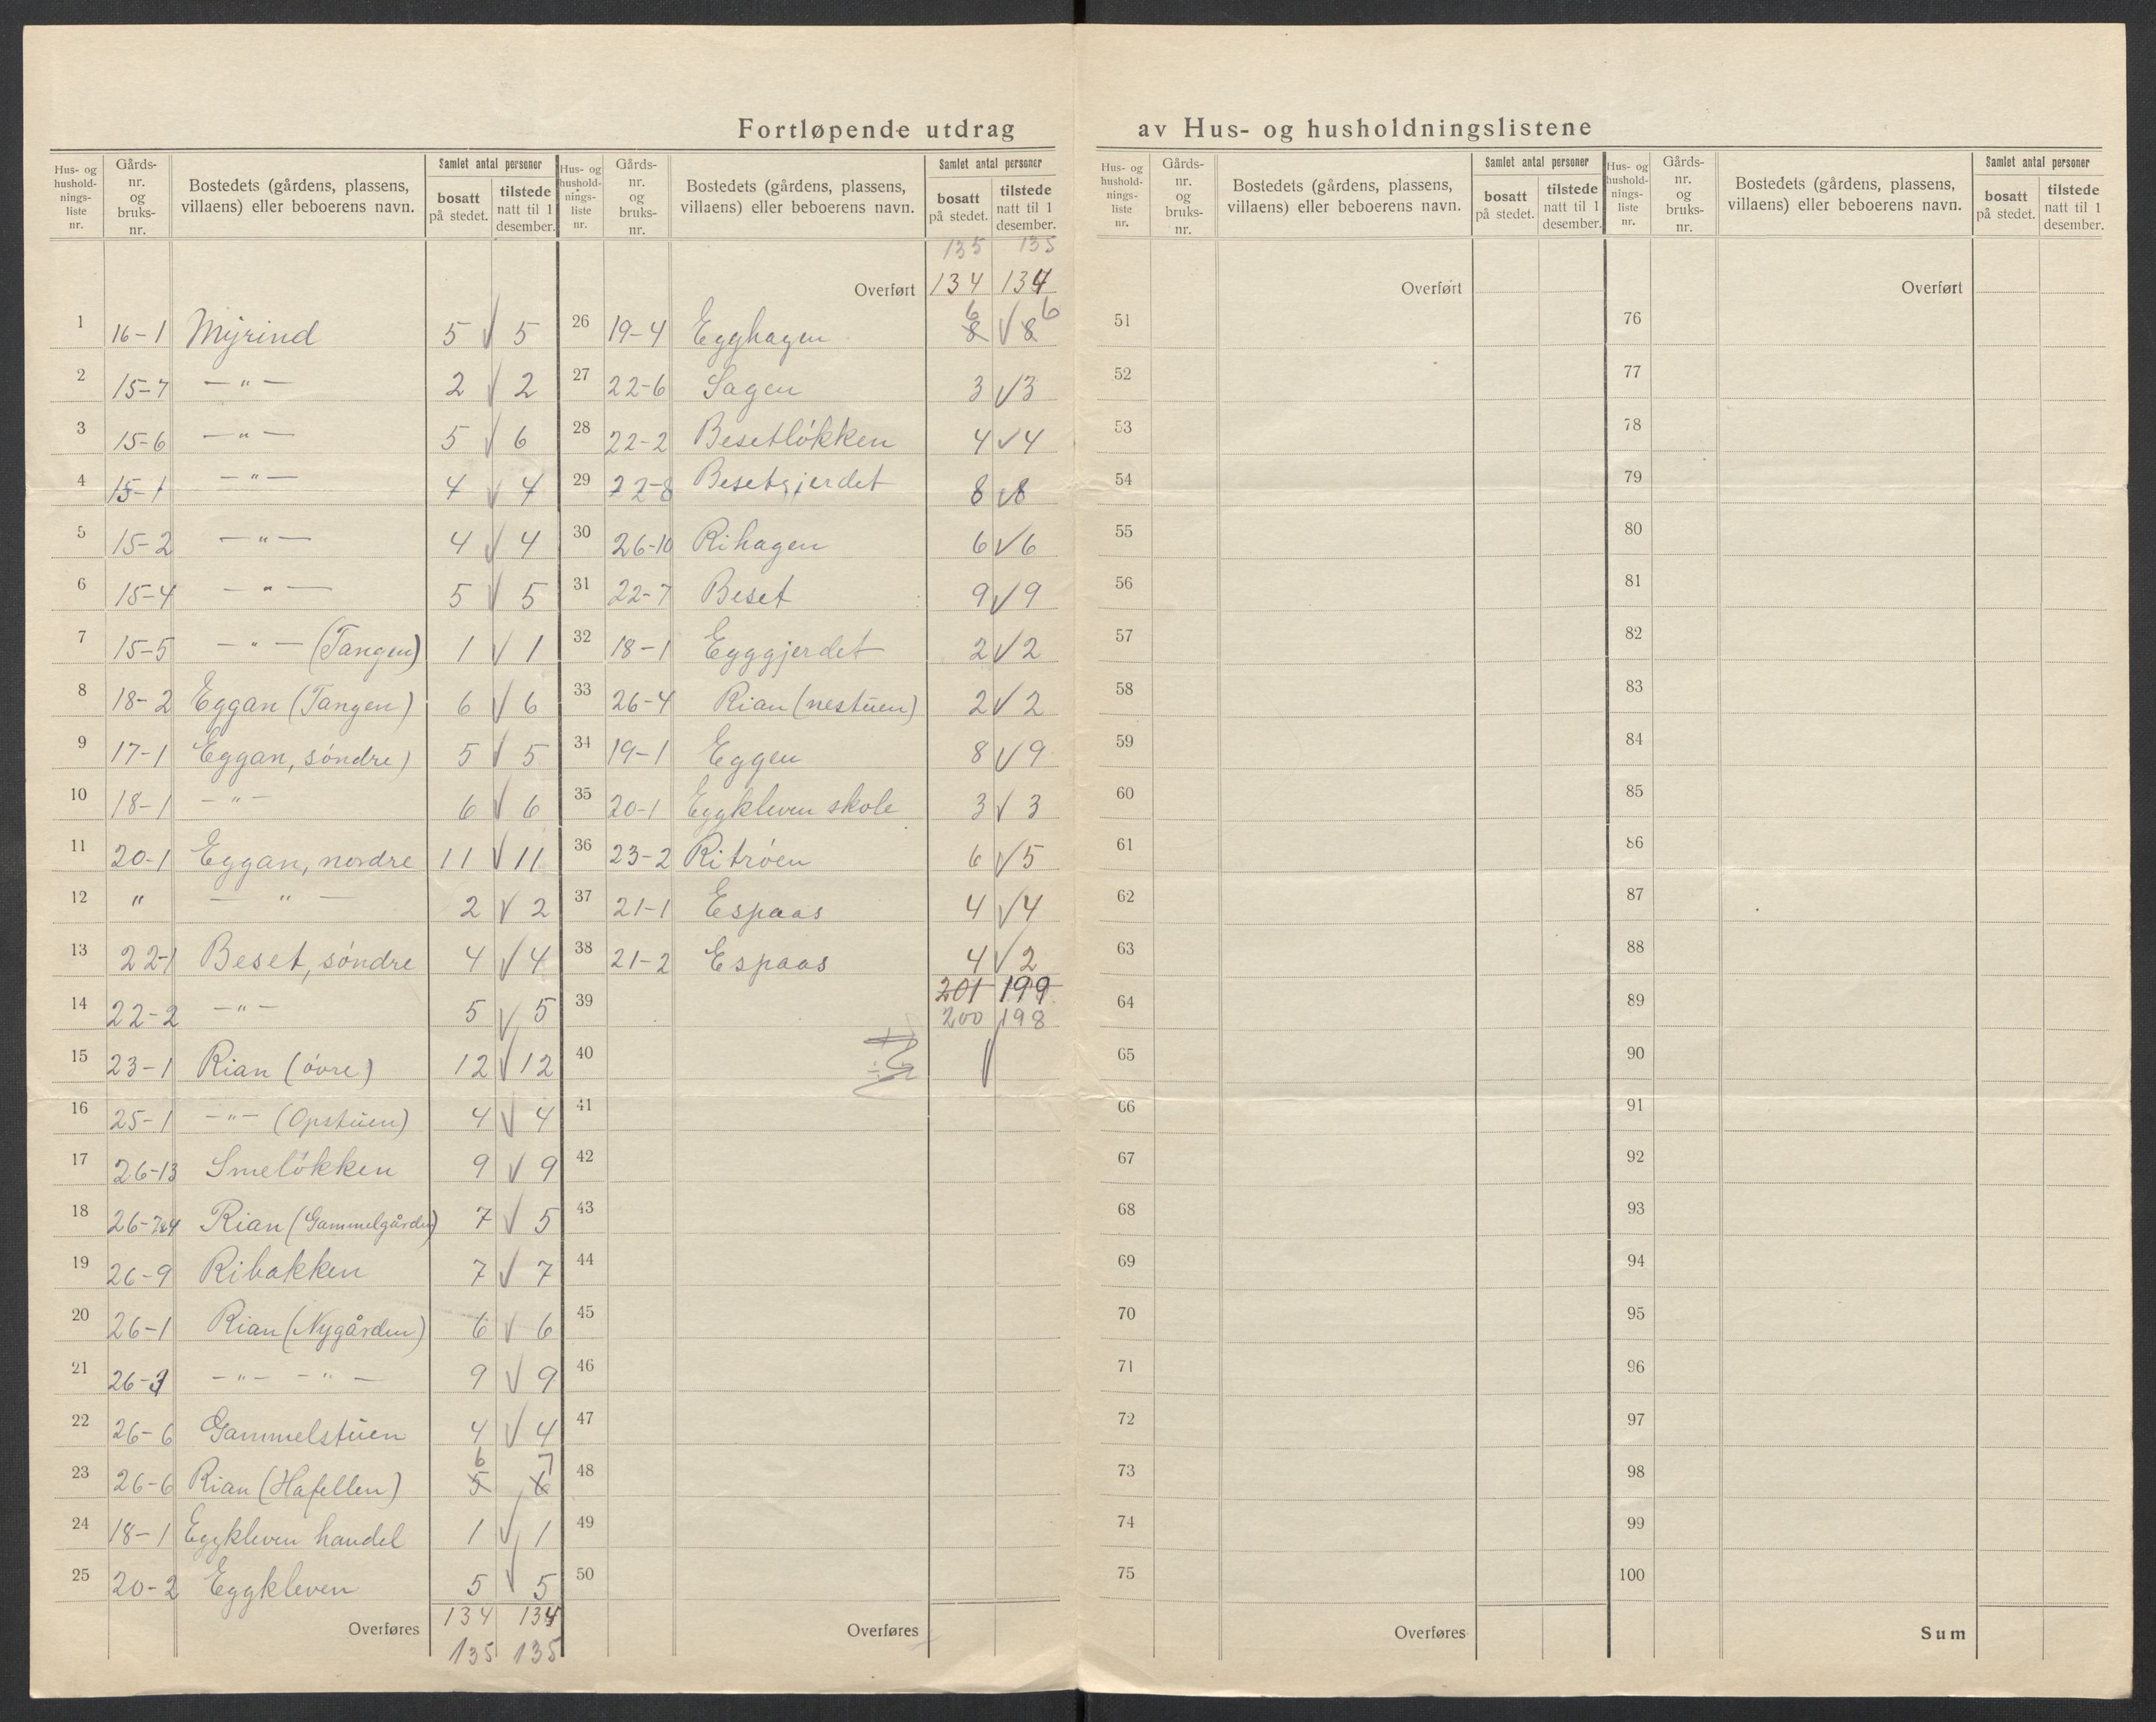 Fortløpende utdrag av Hus- og husholdningslistene
Hus- og hushold- nings- liste nr. | Gårds- nr. og bruks- nr. | Bostedets (gårdens, plassens, villaens) eller beboerens navn. | Samlet antal personer | bosatt på stedet. | tilstede natt til 1 desember.
1 16-1 Myrind 5 √ 5
2 15-7 — " — 2 √ 2
3 15-6 — " — 5 √ 6
4 15-1 — " — 4 √ 4
5 15-2 — " — 4 √ 4
6 15-4 — " — 5 √ 5
7 15-5 — " — (Tangen) 1 √ 1
8 18-2 Eggan (Tangen) 6 √ 6
9 17-1 Eggan, søndre) 5 √ 5
10 18-1 — " — 6 √ 6
11 20-1 Eggan, nordre 11 √ 11
12 " — " — 2 √ 2
13 22-1 Beset, søndre 4 √ 4
14 22-2 — " — 5 √ 5
15 23-1 Rian (øvre) 12 √ 12
16 25-1 — " — (Opstuen) 4 √ 4
17 26-13 Smeløkken 9 √ 9
18 Rian (Gammelgården) 7 √ 5
19 26-9 Ribakken 7 √ 7
20 26-1 Rian (Nygården) 6 √ 6
21 26-3 — " — — " — 9 √ 9
22 26-6 Gammelstuen 4 √ 4
6 7
23 26-6 Rian (Hafellen) 5 6
24 18-1 Eggkleven handel 1 √ 1
25 20-2 Eggkleven 5 √ 5
Overføres 134 134
135 135
Hus- og hushold- nings- liste nr. | Gårds- nr. og bruks- nr. | Bostedets (gårdens, plassens, villaens) eller beboerens navn. | Samlet antal personer | bosatt på stedet. | tilstede natt til 1 desember.
135 135
Overført 134 134
6 6
26 19-4 Egghagen 8 √ 8
27 22-6 Sagen 3 √ 3
28 22-2 Besetløkken 4 √ 4
29 22-8 Besetgjerdet 8 √ 8
30 26-10 Rihagen 6 √ 6
31 22-7 Beset 9 √ 9
32 18-1 Egggjerdet 2 √ 2
33 26-4 Rian (nestuen) 2 √ 2
34 19-1 Eggen 8 √ 9
35 20-1 Eggkleven skole 3 √ 3
36 23-2 Ritrøen 6 √ 5
37 21-1 Espaas 4 √ 4
38 21-2 Espaas 4 √ 2
201 199
39 200 198
40 √
41
42
43
44
45
46
47
48
49
50
Overføres
Hus- og hushold- nings- liste nr. | Gårds- nr. og bruks- nr. | Bostedets (gårdens, plassens, villaens) eller beboerens navn. | Samlet antal personer | bosatt på stedet. | tilstede natt til 1 desember.
Overført
51
52
53
54
55
56
57
58
59
60
61
62
63
64
65
66
67
68
69
70
71
72
73
74
75
Overføres
Hus- og hushold- nings- liste nr. | Gårds- nr. og bruks- nr. | Bostedets (gårdens, plassens, villaens) eller beboerens navn. | Samlet antal personer | bosatt på stedet. | tilstede natt til 1 desember.
Overført
76
77
78
79
80
81
82
83
84
85
86
87
88
89
90
91
92
93
94
95
96
97
98
99
100
Sum